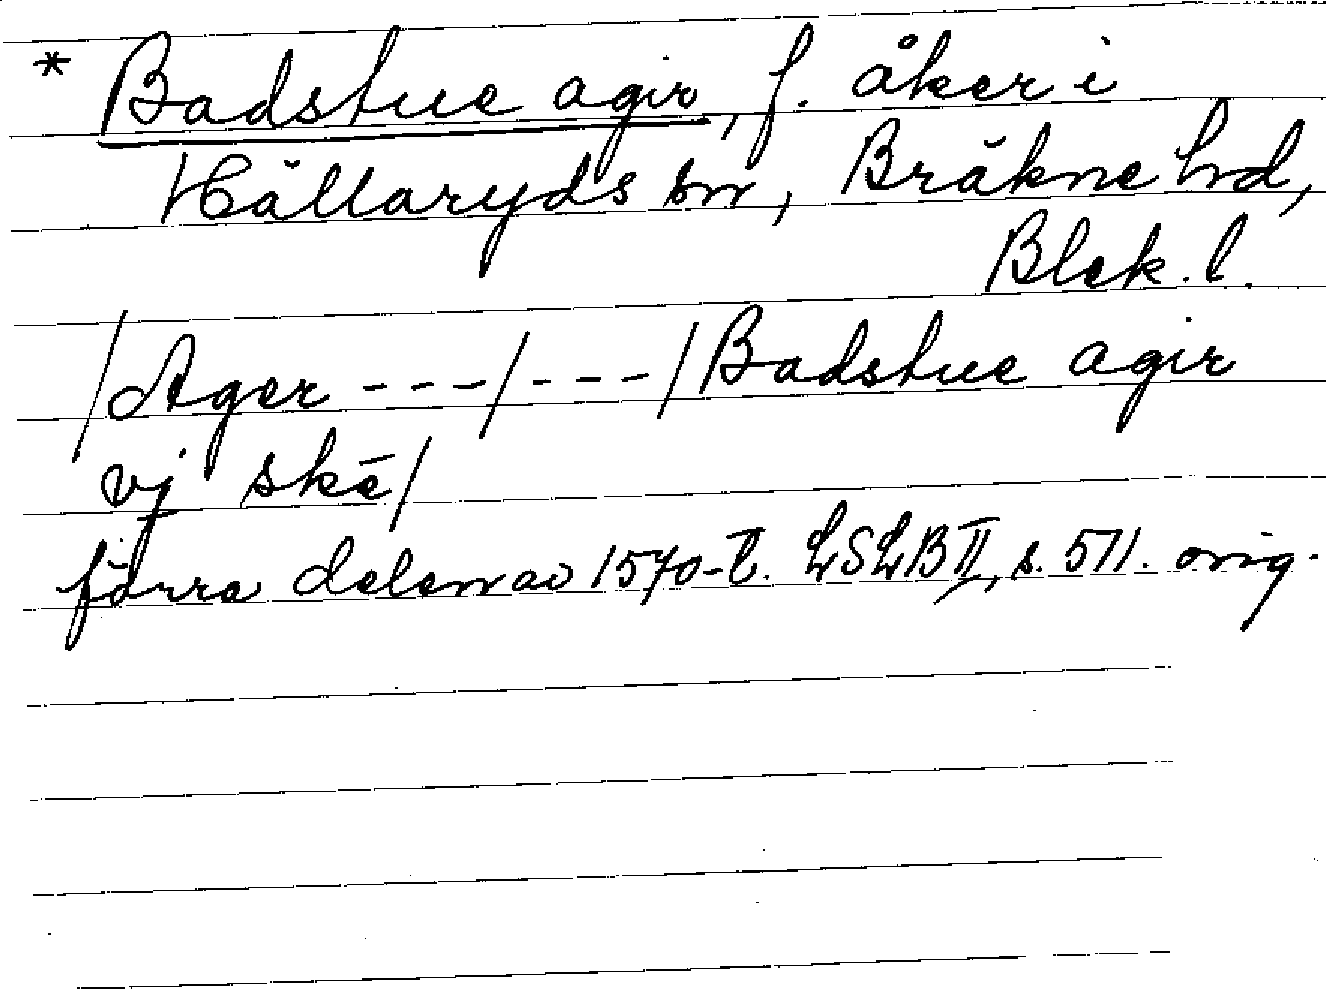 * Badstue agir, f. åker i
Hällaryds sn, Bräkne hd,
Blek. l.
/Ager - - -/- - -/Badstue agir
vj skē/
förra delen av 1570-t. LSLB II, s. 511. orig.